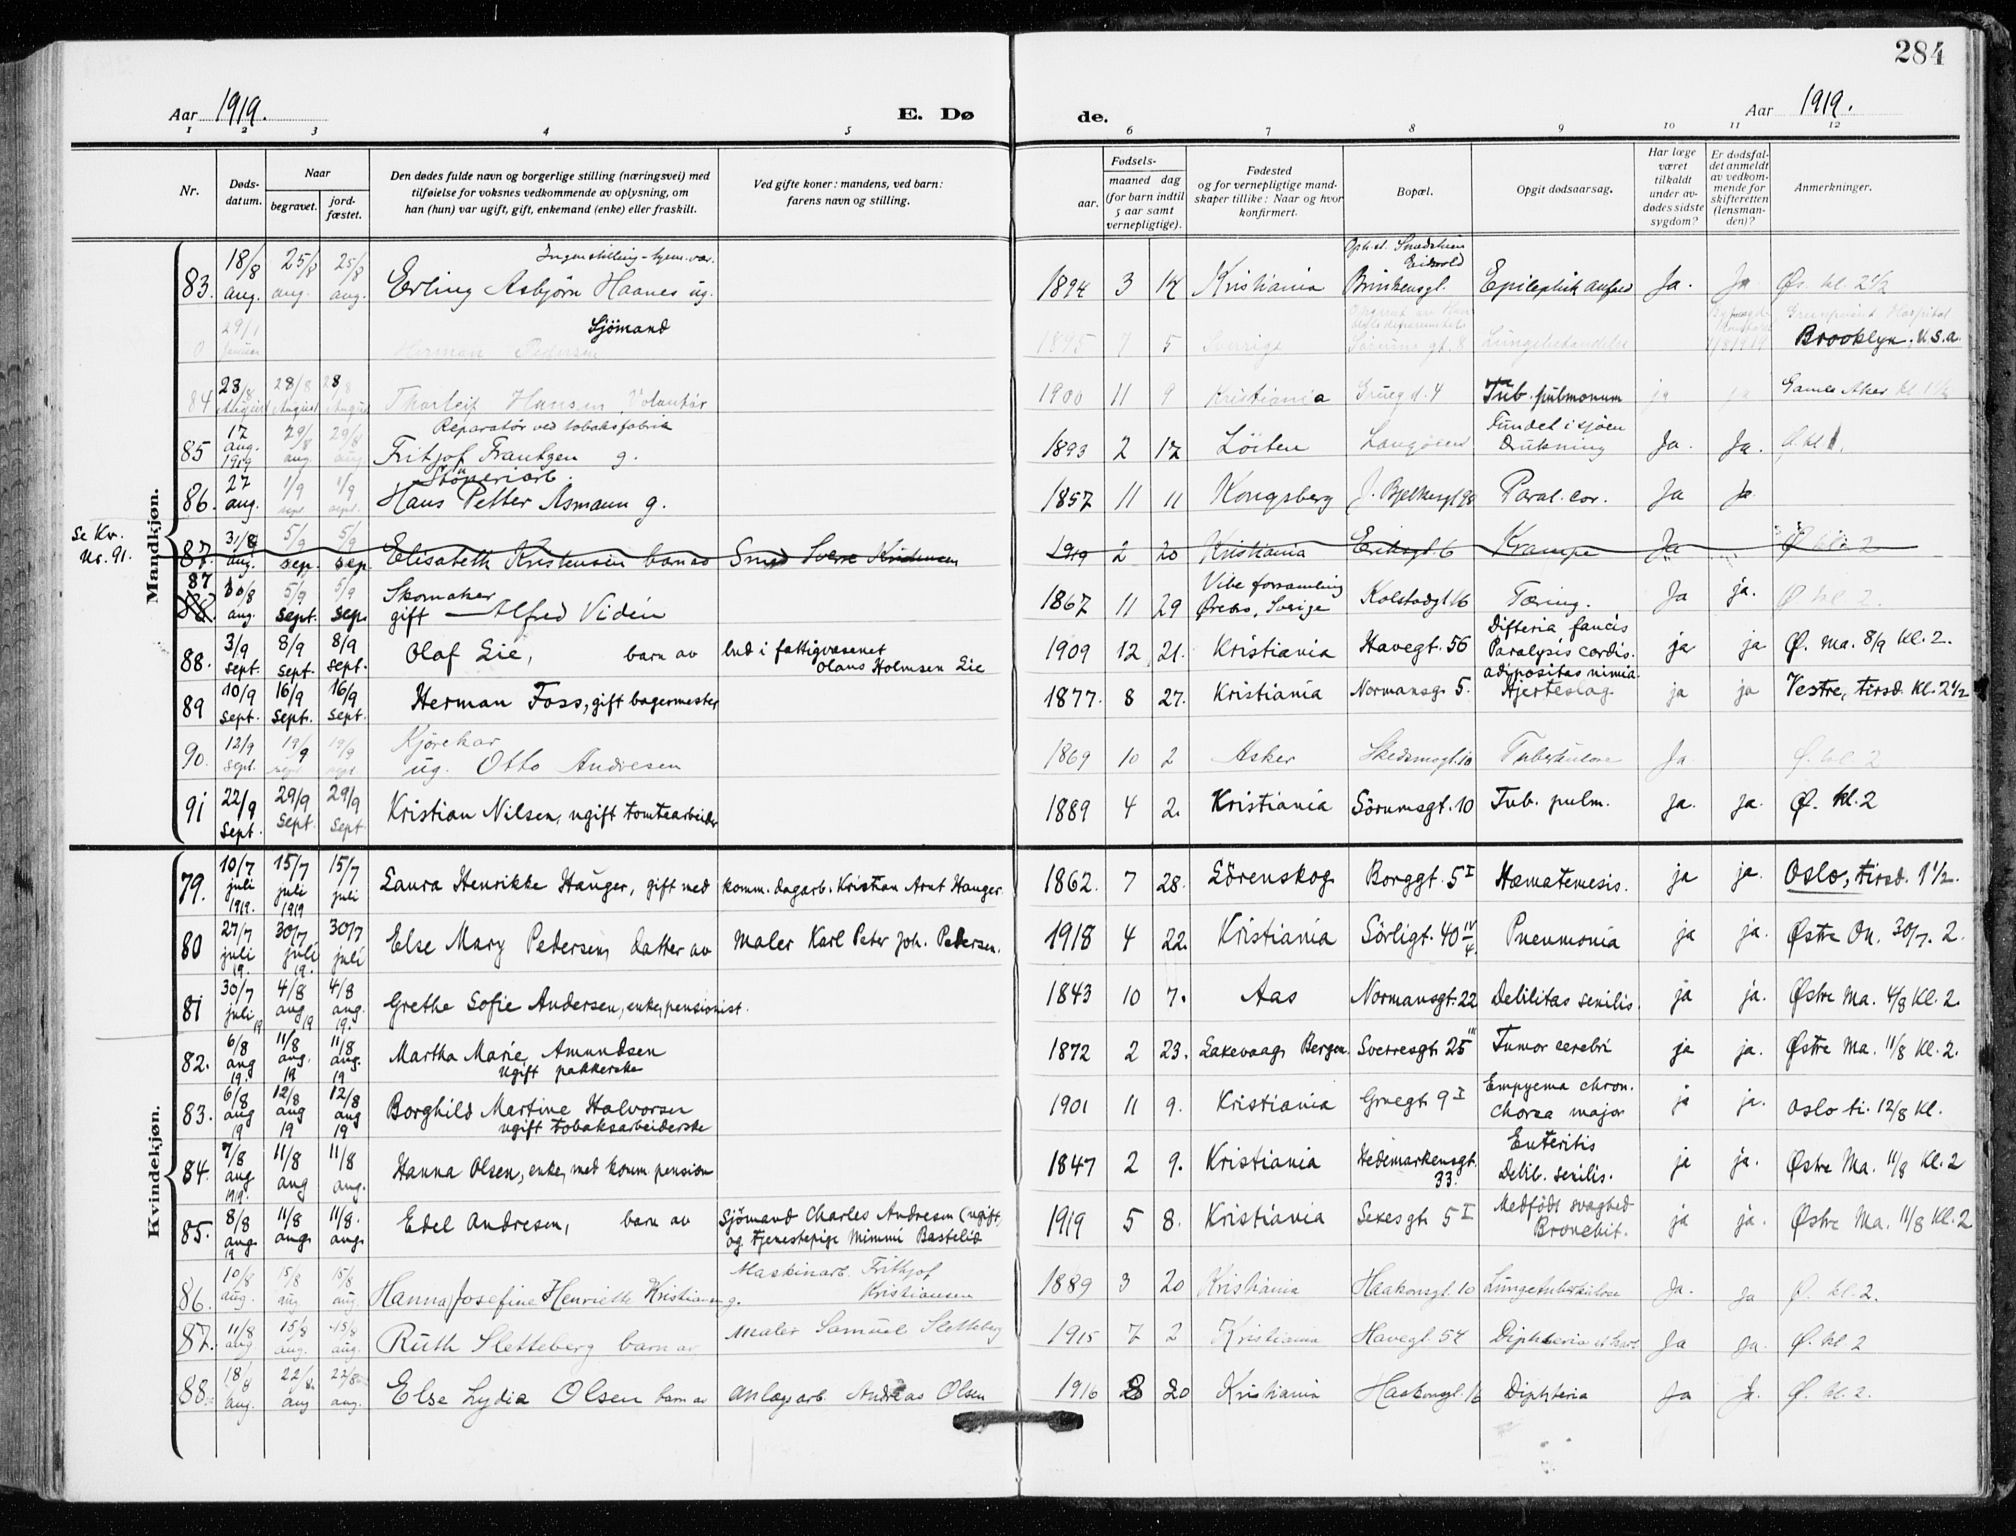 284
Aar 1919. E. Dø de. Aar 1919.
1 2 3 4 5 6 7 8 9 10 11 12
Nr. Døds-datum. Naar begravet. jord-fæstet. Den dødes fulde navn og borgerlige stilling (næringsvei) med tilføielse for voksnes vedkommende av oplysning, om han (hun) var ugift, gift, enkemand (enke) eller fraskilt. Ved gifte koner: mandens, ved barn: farens navn og stilling. Fødsels- aar. maaned dag (for barn indtil 5 aar samt vernepligtige). Fødested og for vernepligtige mand-skaper tillike: Naar og hvor konfirmert. Bopæl. Opgit dødsaarsag. Har læge været tilkaldt under av-dødes sidste sygdom? Er dødsfal-det anmeldt av vedkom-mende for skifteretten (lensman-den)? Anmerkninger.
Mandkjøn.
83. 18/8 aug. 25/8 aug. 25/8 aug. Ingen stilling - hjem. vær. Erling Asbjørn Haanes ug. 1894 3 14 Kristiania Eidsvold Epileptisk anfald Ja. Ja Ø. kl. 2 1/2
0 29/1 Januar Sjömand Herman Pedersen 1895 7 5 Sverige Lungebetændelse Hospital Brooklyn, U.S.a.
84 23/8 August 28/8 August 28/8 August Thorleif Hansen, Volontør 1900 11 9 Kristiania Gruegd. 4 Tub. pulmonum ja ja Gamle Aker kl. 1 1/2
85 17 aug. 1919 29/8 aug. 29/8 aug. Reparatør ved tobaksfabrik Fritjof Frantzen g. 1893 2 17 Löiten Langöens Fundet i sjøen Drukning Ja. Ja. Ø. kl. 1
86. 27 aug. 1/9 sept. 1/9 sept. Stöperiarb. Hans Petter Asmann g. 1857 11 11 Kongsberg J. Bjelkesgt 98 Paral. cor. Ja Ja
Se Kv. Nr. 91. 87. 31/8 aug. 5/9 sep. 5/9 sep. Elisabeth Kristensen barn av Smed Sverre Kristensen 1919 2 20 Kristiania Eriksgt. 6 Krampe Ja Ø kl. 2
87 88. 30/8 aug. 5/9 sept. 5/9 sep. Skomaker gift — Alfred Vidén 1867 11 29 Vibe forsamling Örebro, Sverige Kolstadgt 16 Tæring. Ja ja. Ø kl. 2.
88. 3/9 sept. 8/9 sept. 8/9 sept. Olaf Lie, barn av bud i fattigvæsenet Olaus Holmsen Lie 1909 12 21. Kristiania Havegt. 56 Difteria faucis Paralysis cordis. ja ja Ø. Ma. 8/9 kl. 2.
89 10/9 sept. 16/9 sept. 16/9 sept. Herman Foss, gift bagermester 1877. 8 27. Kristiania Normansg. 5. adipositas nimia. Hjerteslag ja ja Vestre, tirsd. kl. 2 1/2
90. 12/9 sept. 19/9 sept 19/9 sept Kjörekar ug. Otto Andresen 1869 10 2 Asker Skedsmogt. 10 Tuberkulose Ja. Ø. kl. 2
91 22/9 sept. 29/9 sept. 29/9 sept. Kristian Nilsen, ugift tomtearbeider 1889 4 2. Kristiania Sörumsgt. 10 Tub. pulm. ja. ja. Ø. kl. 2
Kvindekjøn.
79. 10/7 juli 1919. 15/7 juli 1919 15/7 juli Laura Henrikke Hauger, gift med komm. dagarb. Kristian Arnt Hauger. 1862. 7 28. Lörenskog Borggt. 5 I Hæmatemesis. ja ja. Oslo, tirsd. 1 1/2.
80 27/7 juli 19. 30/7 juli 19. 30/7 juli Else Mary Pedersen, datter av maler Karl Peter Joh. Pedersen. 1918 4 22. Kristiania Sörligt. 40 IV/4. Pneumonia ja ja. Østre On. 30/7. 2.
81 30/7 juli 19 4/8 aug 19 4/8 aug. 19. Grethe Sofie Andersen, enke, pensionist. 1843 10 7. Aas Normansgt. 22 Debilitas senilis. ja ja. Østre Ma. 4/8 kl. 2.
82. 6/8 aug 19. 11/8 aug. 19 11/8 aug. 19 Martha Marie Amundsen ugift pakkerske 1872 2 23. Laxevaag, Bergen. Sverresgt. 25 III Tumor cerebri ja ja. Østre Ma. 11/8 kl. 2.
83. 6/8 aug 19 12/8 aug 19 12/8 aug 19 Borghild Martine Halvorsen ugift tobaksarbeiderske 1901 11 9. Kristiania Gruegt 9 I Empyema chron. Chorea major ja ja. Oslo ti. 12/8 kl.
84. 7/8 aug 1919. 11/8 aug 11/8 aug. Hanna Olsen, enke, med komm. pension 1847 2 9. Kristiania Hedemarkensgt. 33. Enteritis Debil. senilis. ja ja. Østre Ma. 11/8 kl. 2
85. 8/8 aug. 19 11/8 aug. 11/8. aug. Edel Andresen, barn av Sjömand Charles Andresen (ugift) og tjenestepige Mimmi Bastelid 1919 5 8. Kristiania Sexesgt 5 I Medfödt svaghed Bronchit. ja ja. Østre Ma. 11/8 kl. 2
86. 10/8 aug. 15/8 aug 15/8 aug. Hanna Josefine Henriette Kristiansen g. Maskinarb. Frithjof Kristiansen 1889 3 20 Kristiania Haakonsgt. 10 Lungetuberkulose Ja. Ja Ø. kl. 2.
87. 11/8 aug 15/8 aug. 15/8 aug. Ruth Sletteberg barn av Maler Samuel Sletteberg 1915 7 2 Kristiania Havegt. 54 Diphtheria Ja Ja. Ø. kl. 2
88. 18/8 aug. 22/8 aug 22/8 aug. Else Lydia Olsen barn av anlægsarb. Andreas Olsen 1916 8 20 Kristiania Haakonsgt. 16 Diphteria Ja Ja. Ø. kl. 2.